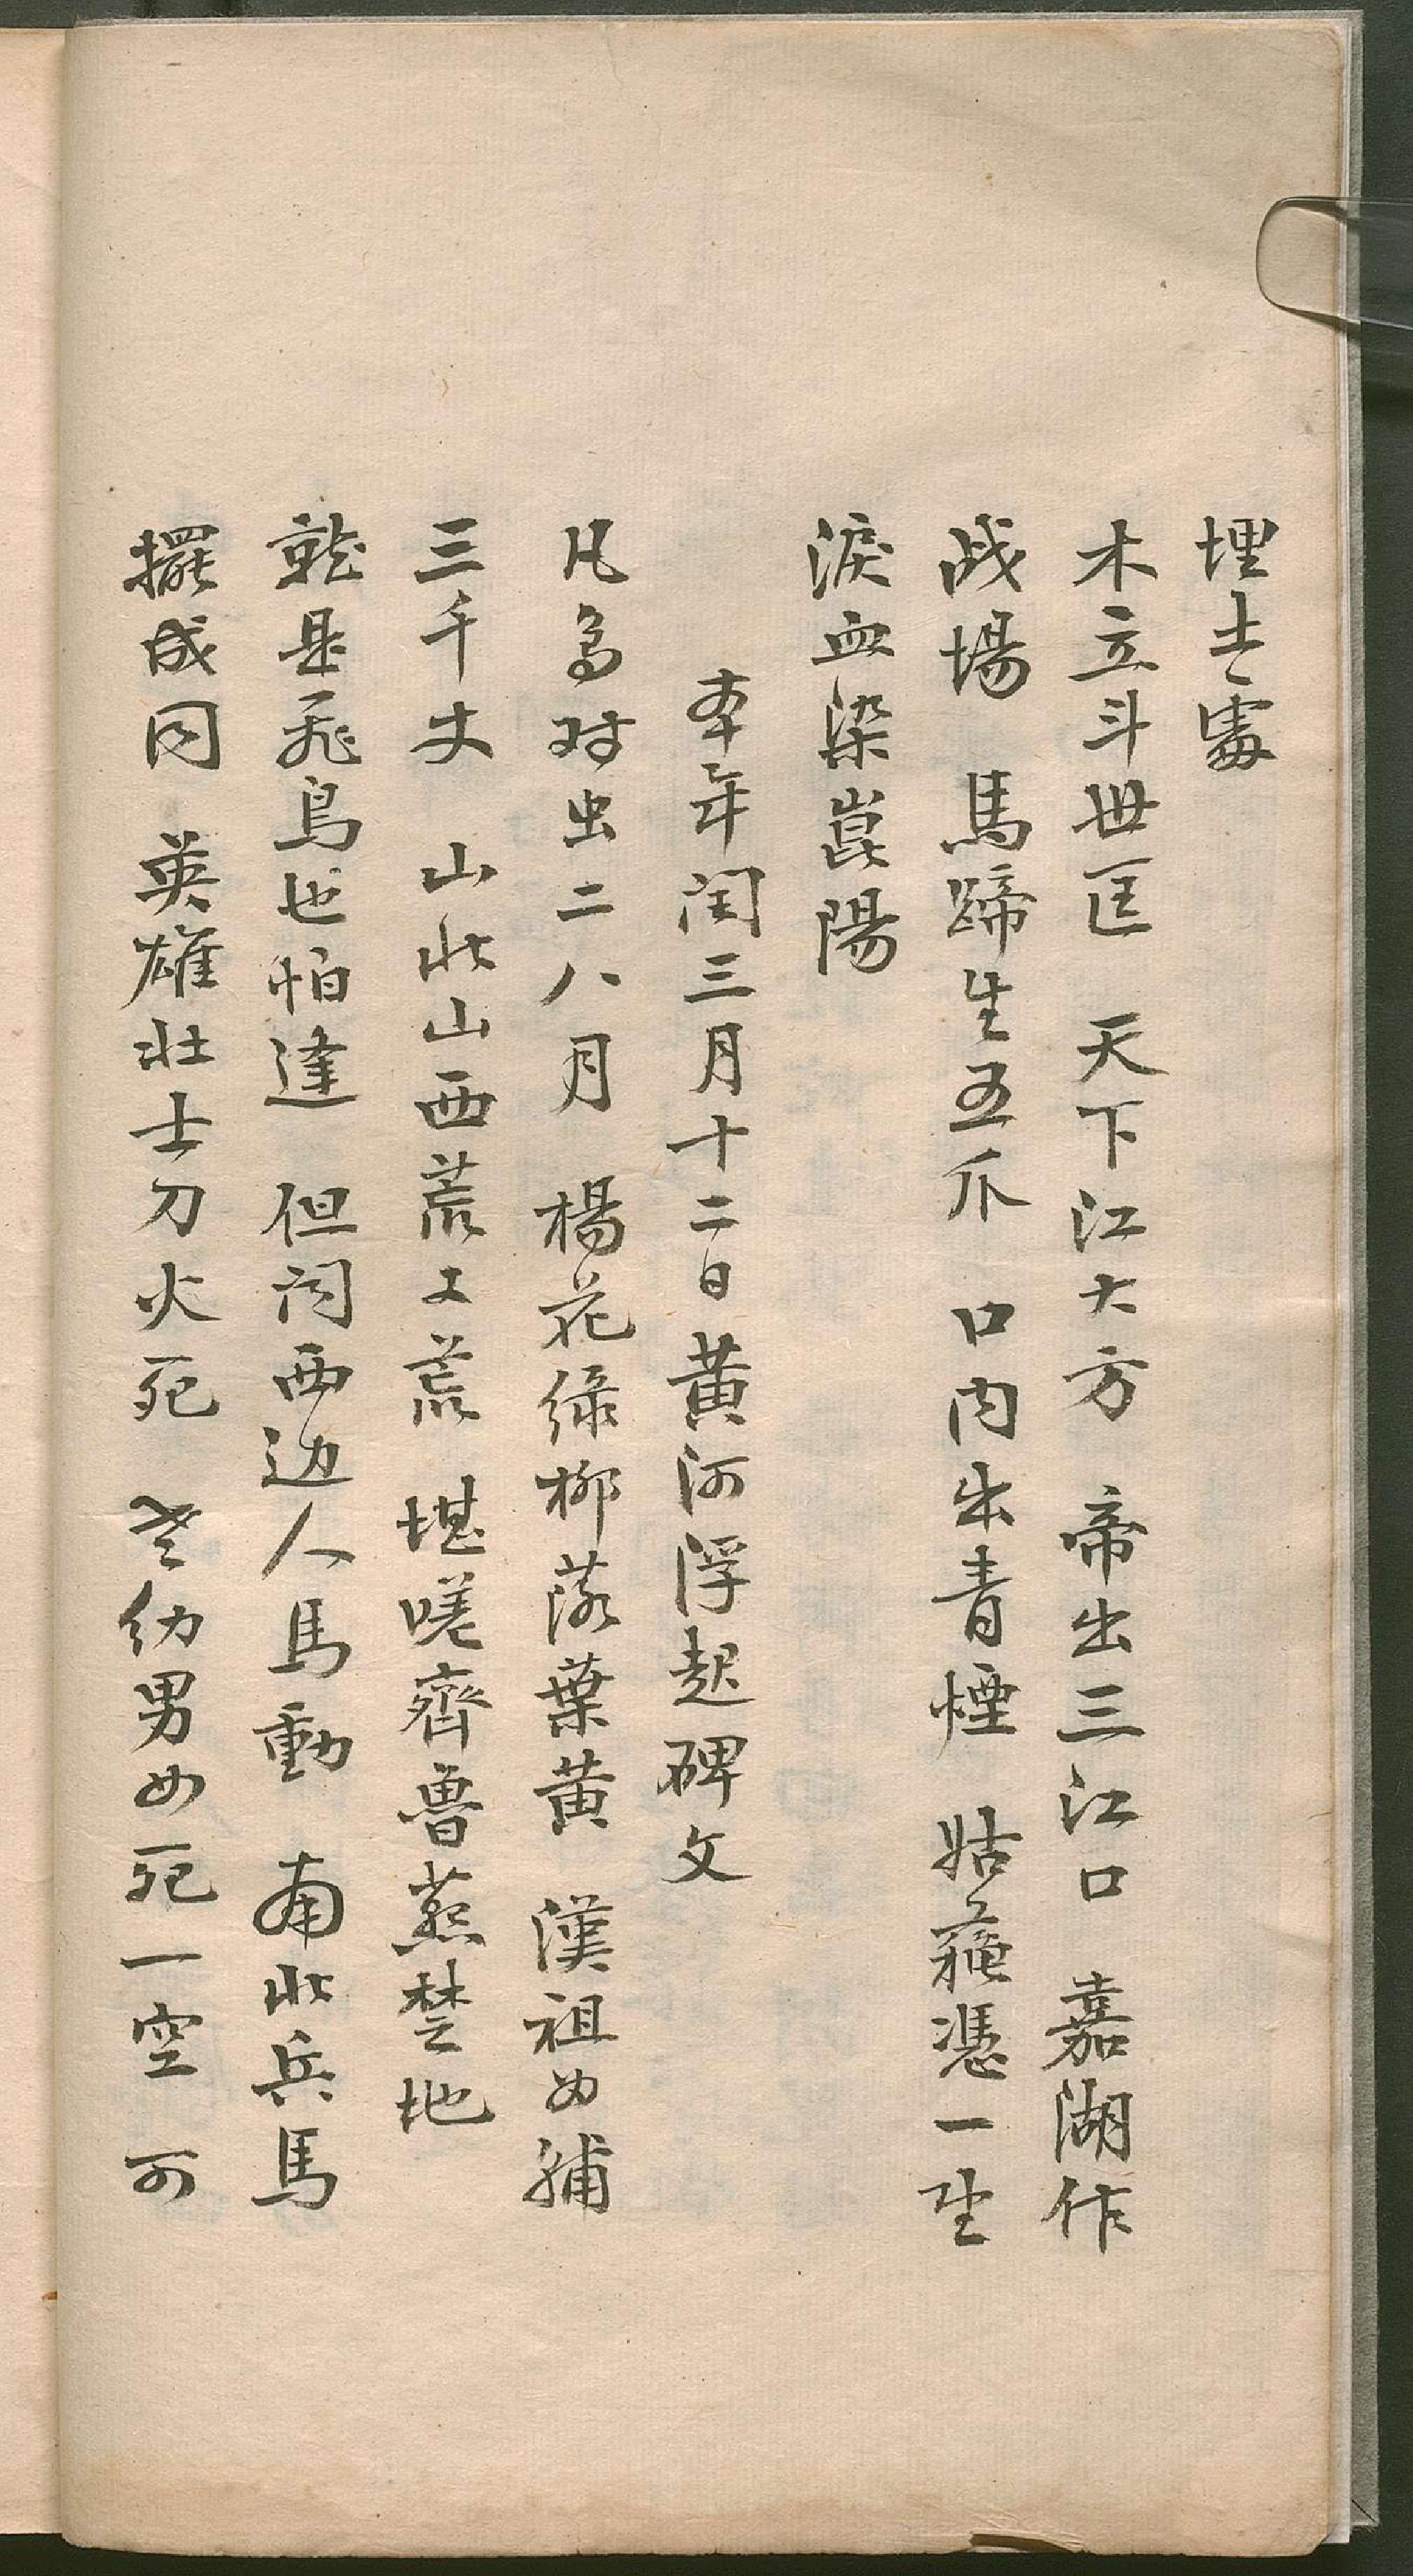 埋土處
木立斗世匡 天下江大方 帝出三江口 嘉湖作
战場 馬蹄生五爪 口内出青煙 姑蘓憑一坐
淚血染崑陽
本年闰三月十二日黄河浮起碑文
凡鳥对虫二八月 楊花绿柳落葉黄 漢祖女補
三千丈 山北山西荒々荒 堪嗟齊魯燕楚地
就是飛鳥也怕逢 但闻西边人馬動 南北兵馬
擺成同 英雄壮士刀火死 老幼男女死一空 可